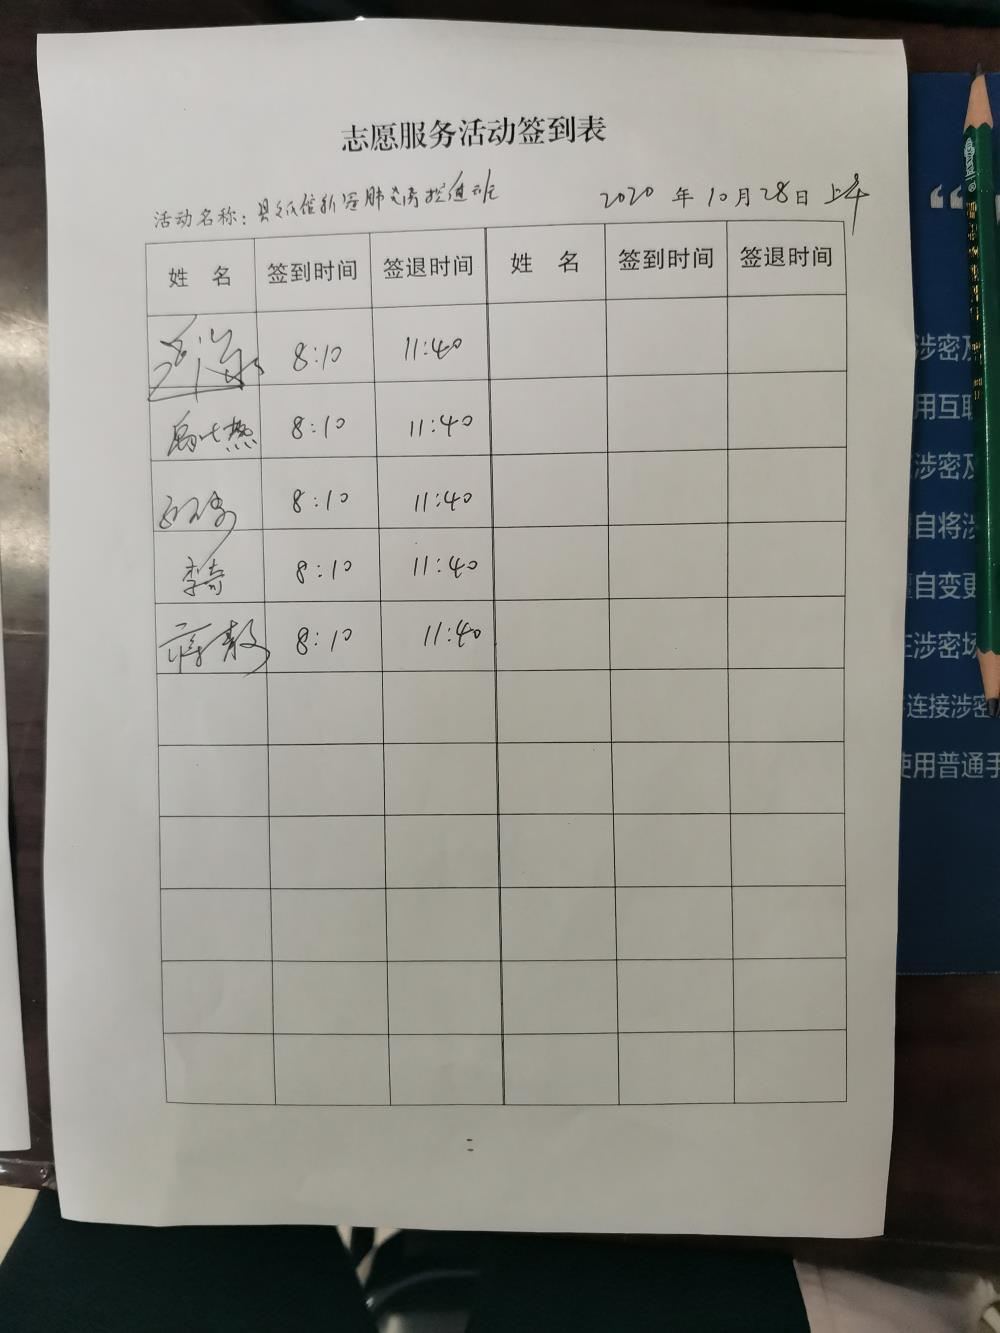 志愿服务活动签到表
活动名称：县 新冠肺炎防控值班
2020 年 10 月 28 日 上午
姓 名 签到时间 签退时间 姓 名 签到时间 签退时间
8:10 11:40
8:10 11:40
8:10 11:40
李奇 8:10 11:40
蒋毅 8:10 11:40
“
涉密及
用互联
涉密及
自将涉
自变更
涉密场
连接涉密
使用普通手